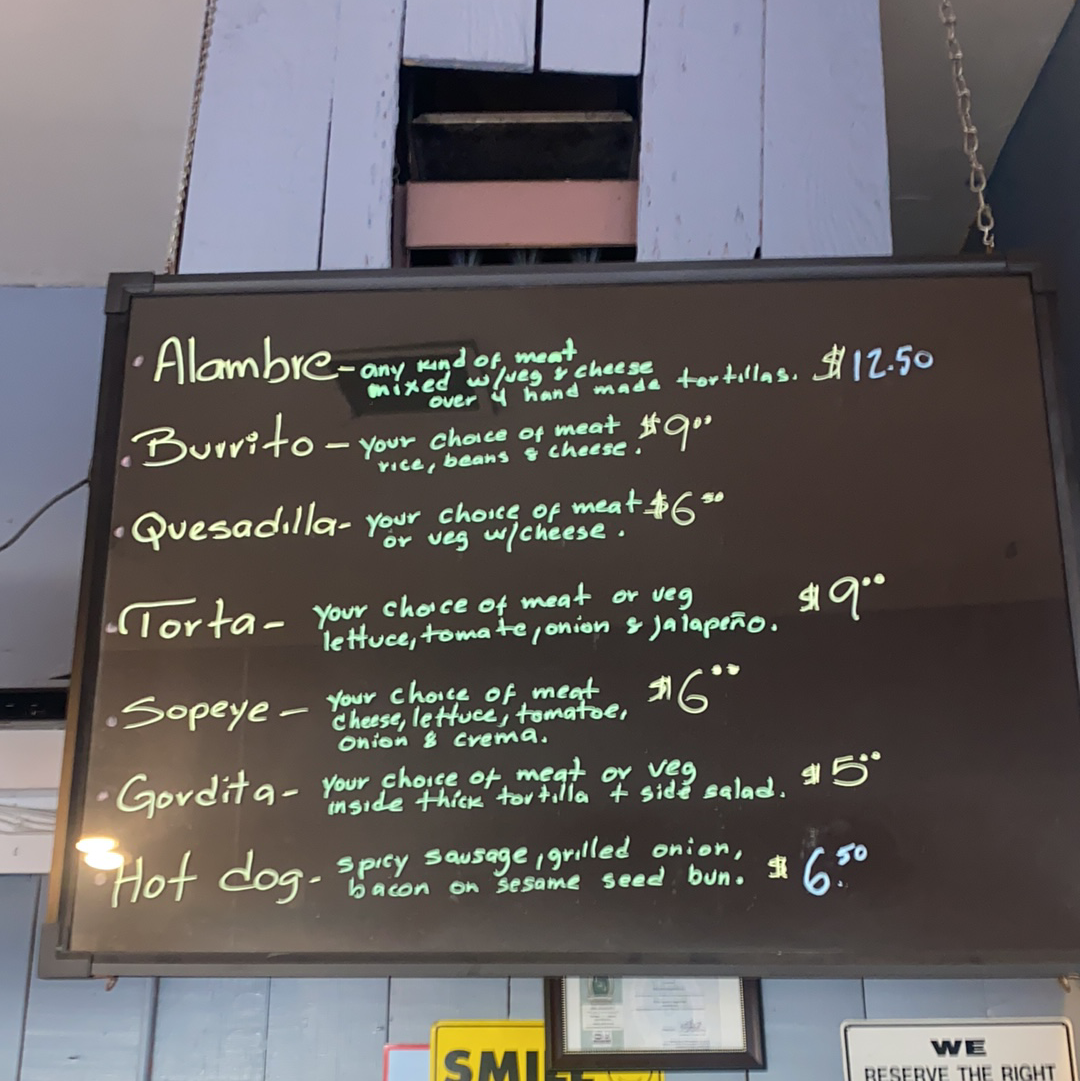 Alambre - any kind of meat
mixed w/veg & cheese
over 4 hand made tortillas. $12.50
Burrito - Your choice of meat $9.00
rice, beans & cheese.
Quesadilla - your choice of meat $6 50
or veg w/cheese.
Torta - Your choice of meat or veg $9.00
lettuce, tomate, onion & jalapeño.
Sopeye - Your choice of meat $6.00
cheese, lettuce, tomatoe,
onion & crema.
Gordita - Your choice of meat or veg $5.00
inside thick tortilla + side salad.
Hot dog - spicy sausage, grilled onion, $6.50
bacon on sesame seed bun.
SMILE
WE
RESERVE THE RIGHT